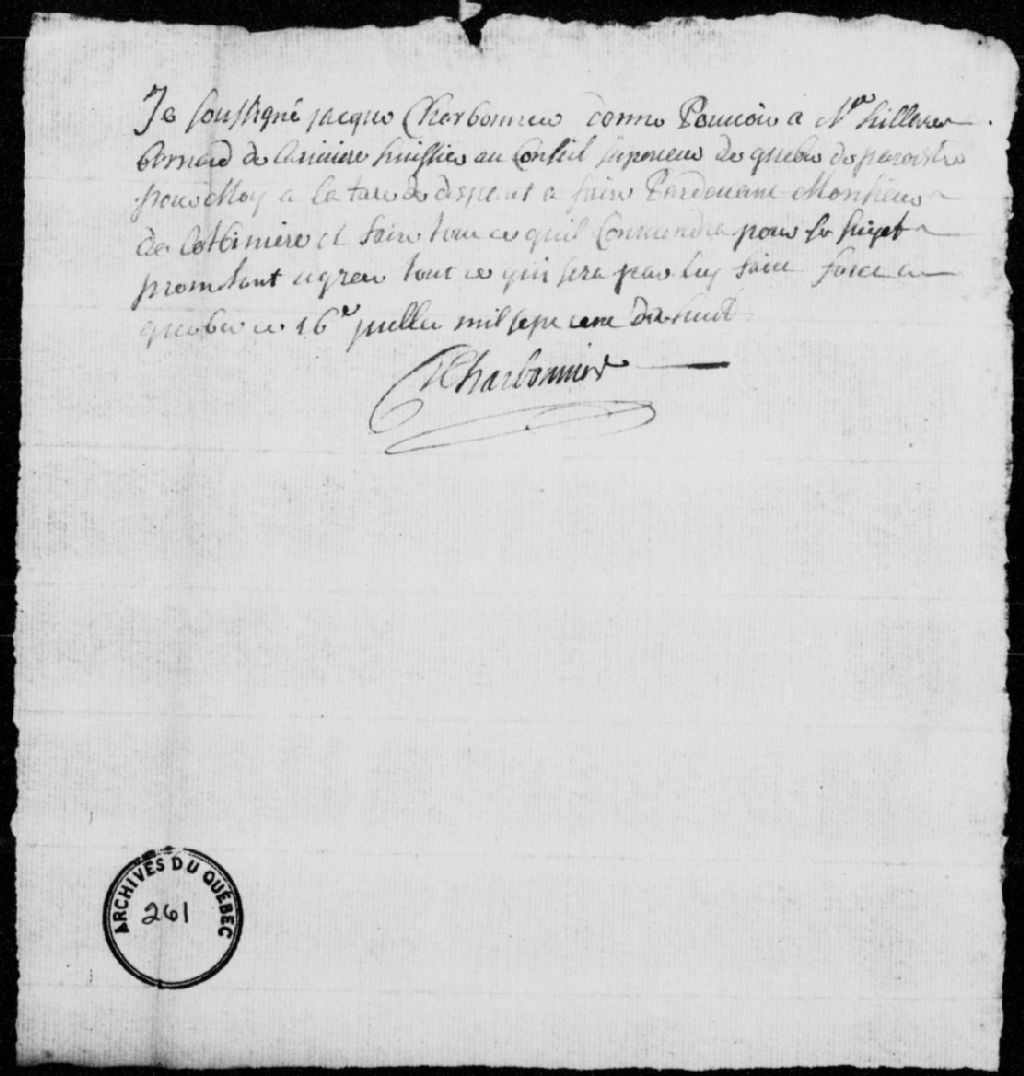 Je soussigné jacque Charbonnier donne Pouvoir a Mr hillere
bernard de lariviere huissier au Conseil superieur de quebec de paroistre
pour Moy a la taxe de despens a faire Pardevant Monsieur
de lottiniere et faire tout ce quil Conviendra pour se sujet
promettant agreer tout ce qui sera par luy faict faict a
quebec ce 16e juillet mil sept cent dixhuit
Charbonnier
ARCHIVES DU QUÉBEC
261